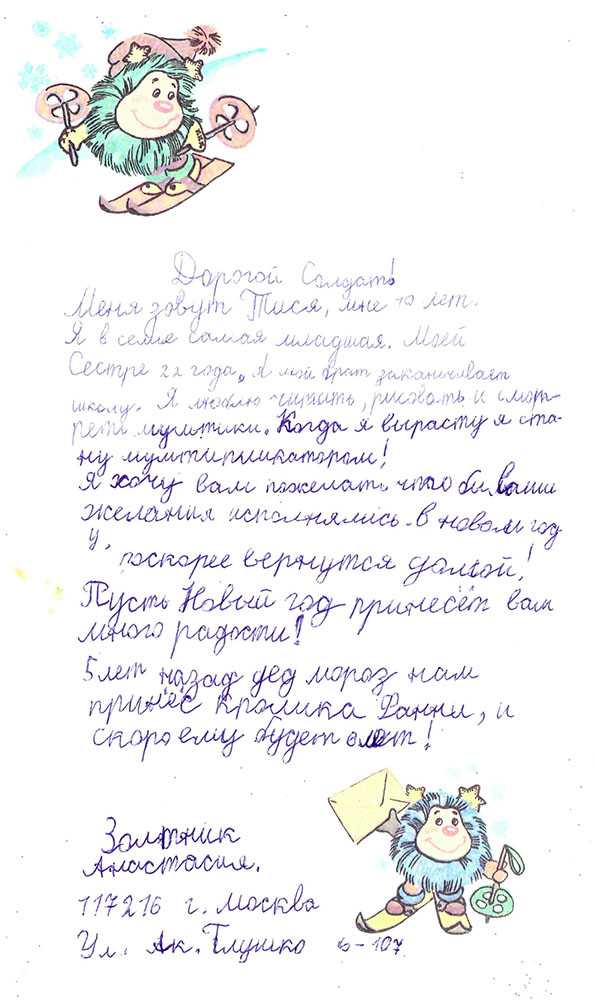 Дорогой Солдат!
Меня зовут Тася, мне 10 лет.
Я в семье самая младшая. Моей
Сестре 22 года, А мой брат заканчивает
школу. Я люблю читать, рисовать и смот-
реть мультики. Когда я вырасту я ста-
ну мультипликатором!
Я хочу вам пожелать что бы ваши
желания исполнялись в новом год
у, поскорее вернутся домой!
Пусть Новый год принесёт вам
много радости!
5 лет назад дед мороз нам
принёс кролика Фанни, и
скоро ему будет лет!
Анастасия.
117216 г. Москва
Ул. Ак. Глушко 6-107